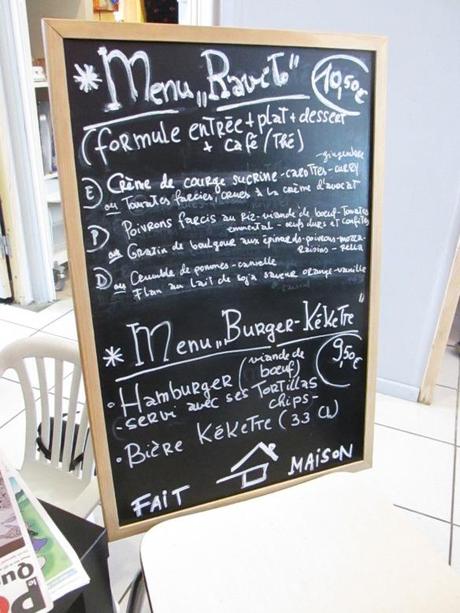 * Menu "Ravito" 10,50€
(formule entrée + plat + dessert
+ café / thé)
- gingembre
E) Crème de courge sucrine - carottes - curry
ou Tomates farcies, crues à la crème d'avocat
P) Poivrons farcis au riz - viande de boeuf - tomates
emmental - oeufs durs et confites
ou Gratin de boulgour aux épinards - poivrons - mozza-
raisins - rella
D) Crumble de pommes - cannelle
ou Flan au lait de soja saveur orange - vanille
* Menu "Burger - KéKeTTe" 9,50€
• Hamburger (viande de
boeuf)
- servi avec ses Tortillas
chips -
• Bière KéKeTTe (33 CL)
FAIT MAISON
Le
Que